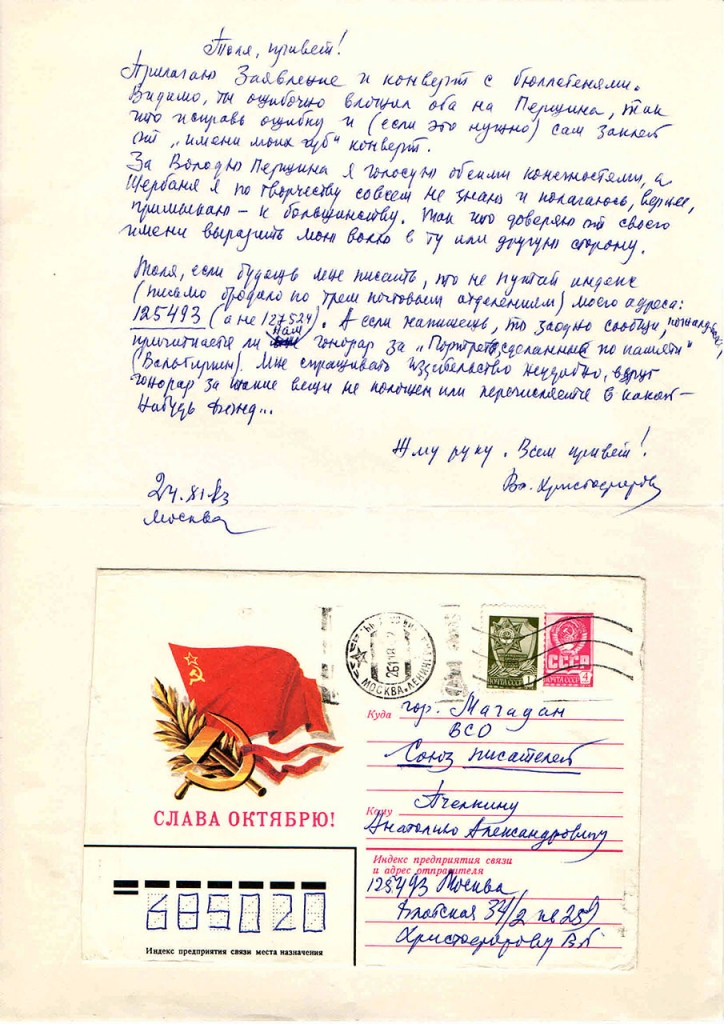 Толя, привет!
Прилагаю Заявление и конверт с бюллетенями.
Видимо, ты ошибочно вложил оба на Першина, так
что исправь ошибку и (если это нужно) сам заклей
от „имени моих губ" конверт.
За Володю Першина я голосую обеими конечностями, а
Щербаня я по творчеству совсем не знаю и полагаюсь, вернее,
примыкаю – к большинству. Так что доверяю от своего
имени выразить мою волю в ту или другую сторону.
Толя, если будешь мне писать, то не путай индекс
(письмо бродило по трем почтовым отделениям) моего адреса:
125493 (а не 127524). А если напишешь, то заодно сообщи,
причитается ли нам гонорар за „Портреты, сделанные по памяти"
Мне спрашивать издательство неудобно, вдруг
гонорар за такие вещи не положен или перечисляется в какой-
нибудь фонд...
Жму руку. Всем привет!
Вл. Христофоров
24.XI.83
Москва
МОСКВА ЛЕНИНГ
1
ПОЧТА СССР
СССР
ПОЧТА СССР 4
СЛАВА ОКТЯБРЮ!
Куда гор. Магадан
ВСО
Союз писателей
Кому Пчелкину
Анатолию Александровичу
Индекс предприятия связи
и адрес отправителя
125493 Москва,
34/2 кв 259
Христофорову В.Г
685020
Индекс предприятия связи места назначения